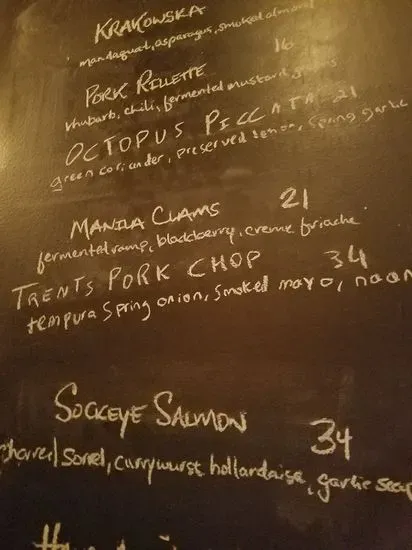 KRAKOWSKA
mandaquat, asparagus, smoked almond
PORK RILLETTE 16
rhubarb, chili, fermented mustard
OCTOPUS PICCATA 21
green coriander, preserved lemon, spring garlic
MANILA CLAMS 21
fermented ramp, blackberry, creme friache
TRENTS PORK CHOP 34
tempura spring onion, smoked mayo,
SOCKEYE SALMON 34
charred sorrel, currywurst hollandaise, garlic